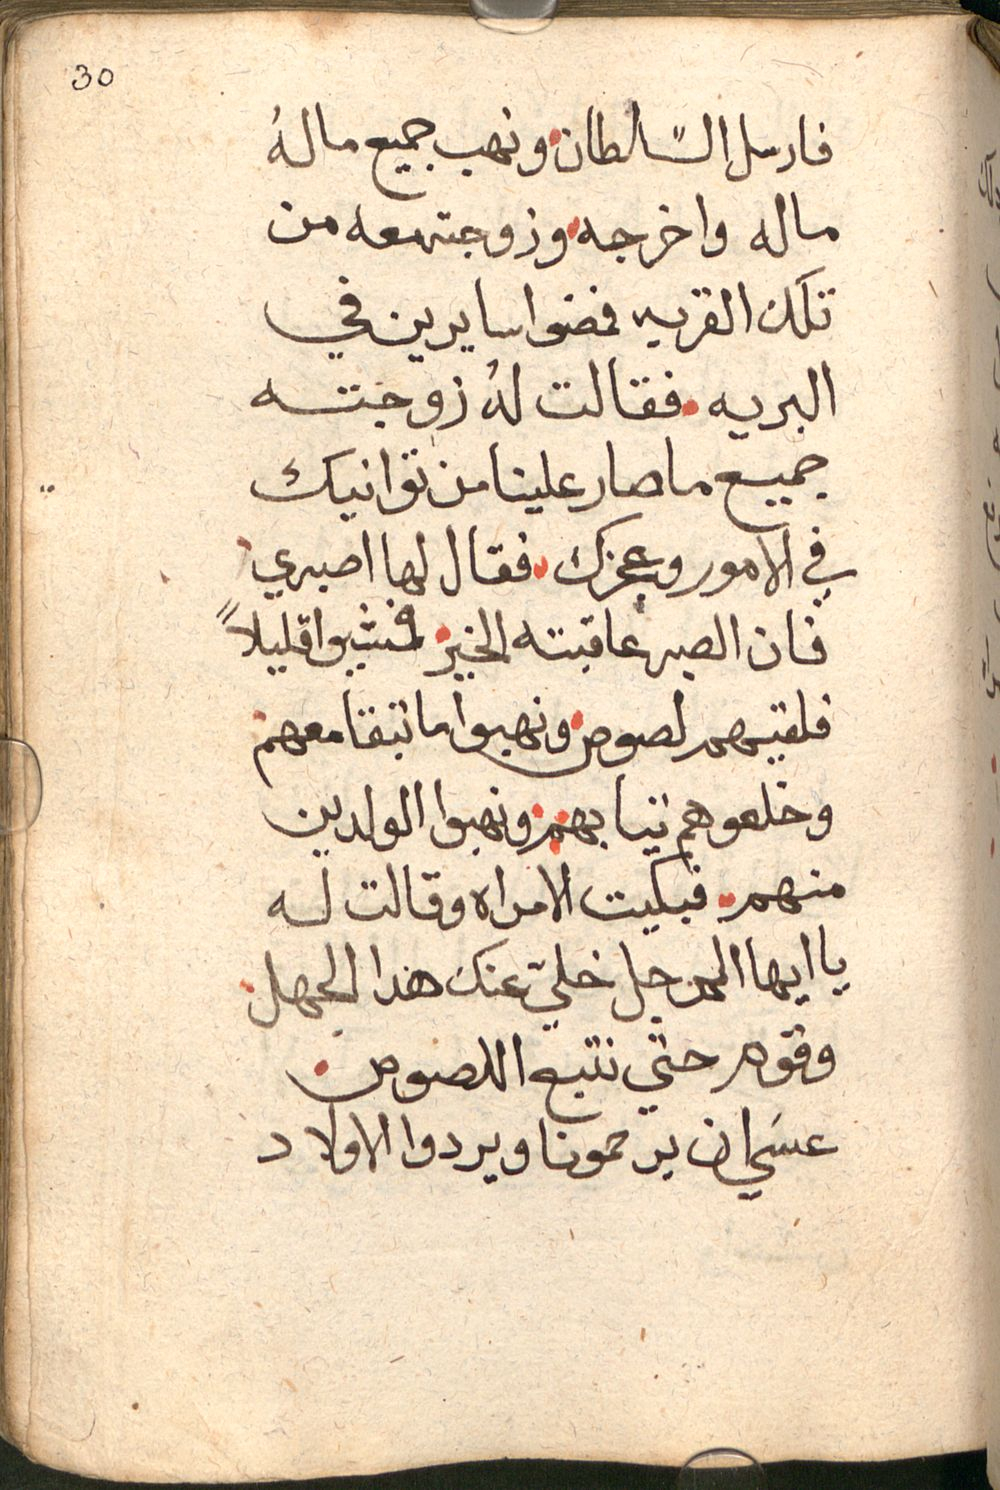 30
فارسل السلطان ونهب جميع ماله
ماله واخرجه وزوجته معه من
تلك القريه فمضوا سايرين في
البريه فقالت له زوجته
جميع ما صار علينا من توانيك
في الامور وعجزك فقال لها اصبري
فان الصبر عاقبته الخير فمشيوا قليلاً
فلقيهم لصوص ونهبوا ما تبقا معهم
وخلعوهم تيابهم ونهبوا الولدين
منهم فبكيت الامراه وقالت له
يا ايها الرجل خلي عنك هذا الجهل
وقوم حتي نتبع اللصوص
عسَي ان يرحمونا ويردوا الاولاد